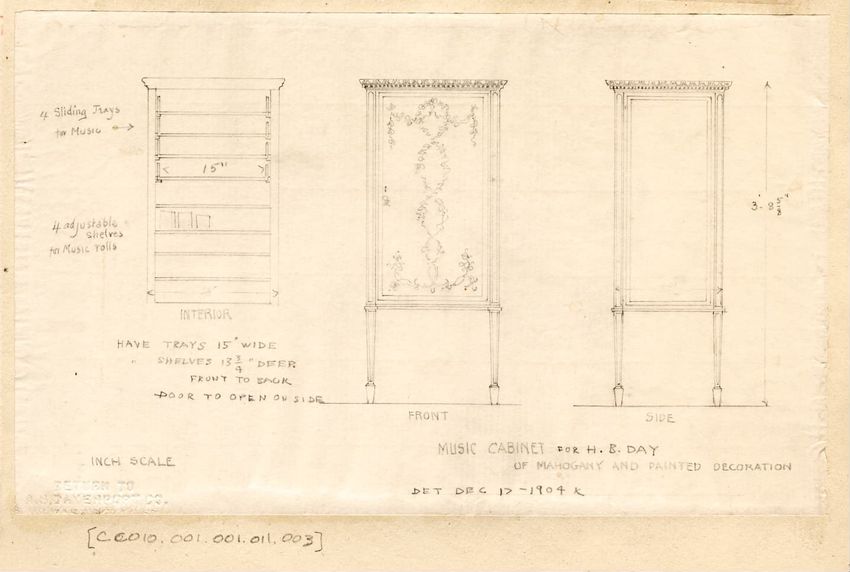 4 Sliding Trays
for Music
15"
4 adjustable
shelves
for Music rolls
INTERIOR
HAVE TRAYS 15" WIDE
" SHELVES 13 3/4" DEEP
FRONT TO BACK
DOOR TO OPEN ON SIDE
FRONT
SIDE
3'- 8 5/8"
MUSIC CABINET FOR H. B. DAY
OF MAHOGANY AND PAINTED DECORATION
INCH SCALE
DET DEC 17-1904 K
RETURN TO
A.H. DAVENPORT CO.
[CC010.001.001.011.003]